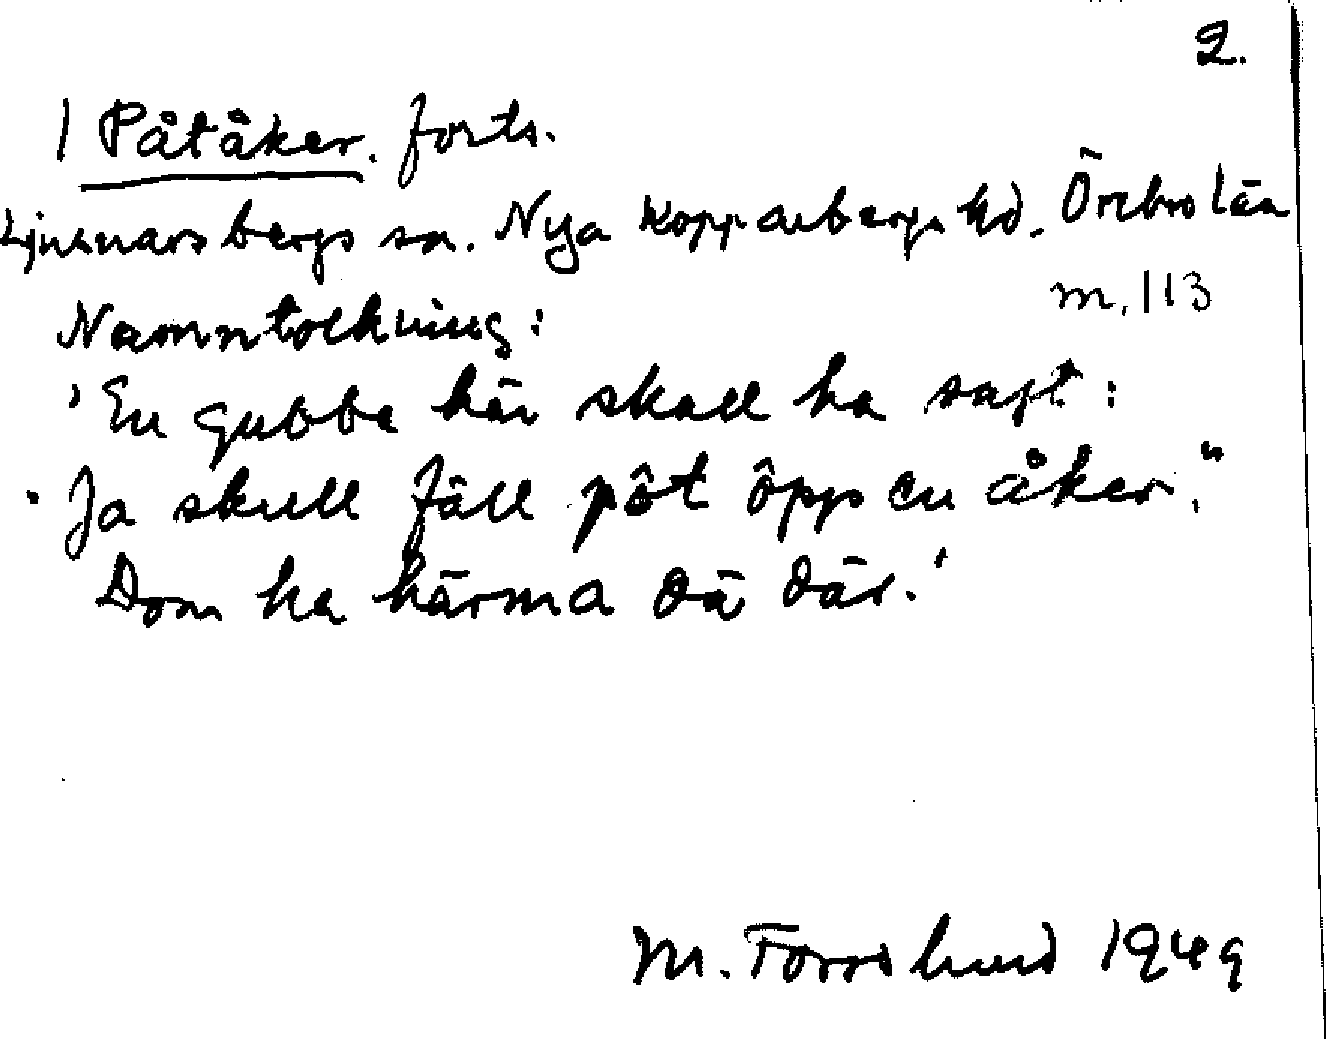 2.
1 Påtåker. forts.
Ljusnarsbergs sn. Nya Kopparbergs hd. Örebro län
m. 113
Namntolkning:
'En gubbe här skall ha sagt:
"Ja skull fäll pôt ôpp en åker."
Dom ha härma dä där.'
M. Forslund 1949